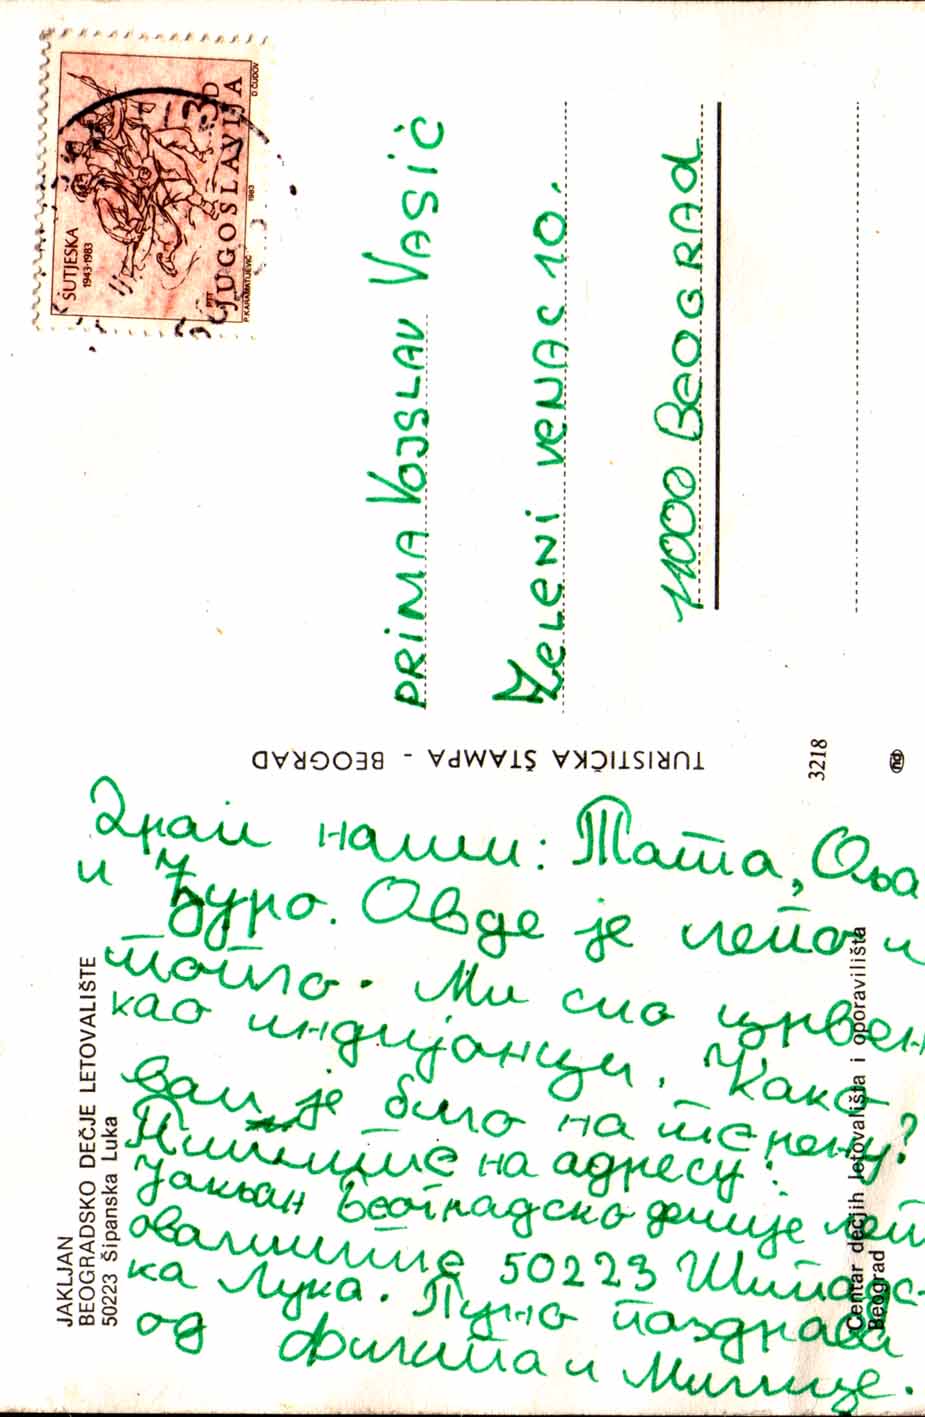 ŠUTJESKA
1943-1983
PTT
JUGOSLAVIJA
3D
P.KARAMATIJEVIĆ
1983
D. ČUDOV
PRIMA VOJSLAV VASIĆ
ZELENI VENAC 10.
11000 BEOGRAD
TURISTIČKA ŠTAMPA - BEOGRAD
3218
JAKLJAN
BEOGRADSKO DEČJE LETOVALIŠTE
50223 Šipanska Luka
Драги наши: Тата, Оља
и Ђуро. Овде је лепо и
топло. Ми смо црвени
као индијанци. Како
вам је било на терену?
Пишите на адресу:
Јакљан Београдско дечије лет
овалиште 50223 Шипанс-
ка Лука. Пуно поздрава
од Филипа и Милице.
Centar dečjih letovališta i oporavilišta
Beograd